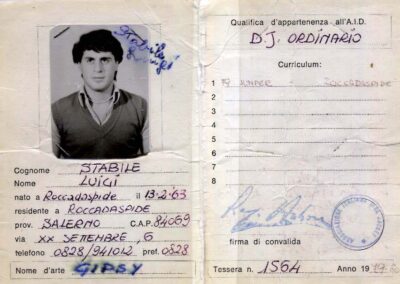 Stabile
Luigi
Cognome STABILE
Nome LUIGI
nato a Roccadaspide il 13-2-63
residente a ROCCADASPIDE
prov. SALERNO C.A.P. 84069
via XX SETTEMBRE, 6
telefono 0828/941012 pref. 0828
Nome d'arte GIPSY
Qualifica d'appartenenza all'A.I.D.
D.J. ORDINARIO
Curriculum:
1 ROCCADASPIDE
2
3
4
5
6
7
8
firma di convalida
Tessera n. 1564 Anno 19